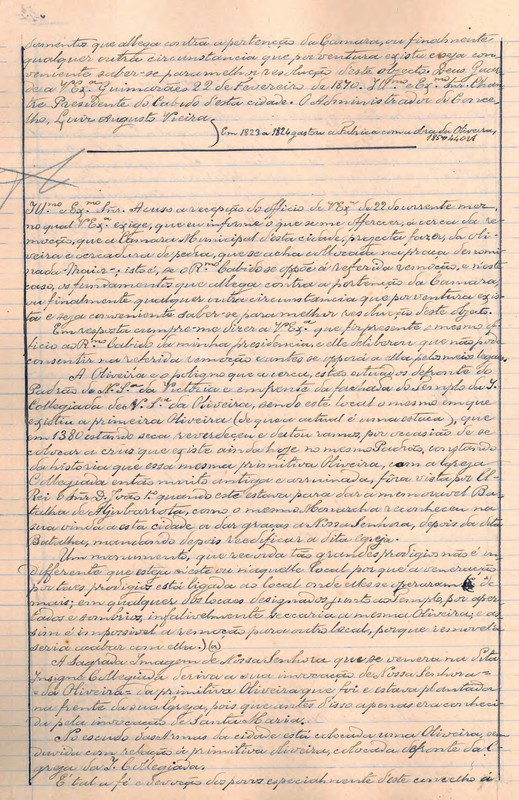 damentos que allega contra a pertenção da Camara, ou finalmente
qualquer outra circunstancia que porventura exista e seja con
veniente saber-se para melhor resolução d'este objecto. Deus Guar
de a V Exª Guimarães 22 de Fevereiro de 1870. Illmo e Exmo Snr. Chan
tre Presidente do Cabido d'esta cidade. O Administrador do Conce
lho, Luiz Augusto Vieira.
Em 1823 a 1824 gastou a Fabrica com a obra da Oliveira,
Illmo e Exmo Snr. Acuso a recepção do officio de V Exª de 22 do corrente mez,
no qual V Exª exige, que eu informe o que se me offerecer, á cerca da re
moção, que a Camara Municipal d'esta cidade, projecta fazer, da Oli
veira e cercadura de pedra, que se acha collocada na praça denomi
nada = Praia =; isto é, se o Rmo Cabido se oppõe á referida remoção, e n'este
caso, os fundamentos que allega contra a pertenção da Camara,
ou finalmente qualquer outra circumstancia que porventura exis
ta e seja conveniente saber para melhor resolução d'este objecto.
Em resposta cumpre-me dizer a V Exª que fiz presente o mesmo of
ficio ao Rmo Cabido da minha presidencia, e elle deliberou que não pode
consentir na referida remoção e antes se oppoia a ella pelos meios legaes.
A Oliveira e o poligno que a cerca, estão situados defronte do
Padrão de N. Sra da Victoria e em frente da fachada do Templo da I.
Collegiada de N. Sra da Oliveira, sendo este local o mesmo em que
existiu a primeira Oliveira (de que a actual é uma estaca), que
em 1380 estando seca reverdeceu e deitou ramos, por occasião de se
collocar a cruz que existe ainda hoje no mesmo Padrão, constando
da historia que essa mesma primitiva Oliveira, com a Igreja
Collegiada então muito antiga e arruinada, fora vista por El-
Rei o Snr D. João 1º quando este estava para dar a memoravel Ba
talha de Aljubarrota, como o mesmo Monarcha reconheceu na
sua vinda a esta cidade a dar graças a Nossa Senhora, depois da dita
Batalha, mandando depois reedificar a dita Igreja.
Um monumento, que recorda tão grandes prodigios não é in
differente que esteja n'este ou n'aquelle local porque a veneração
por taes prodigios está ligada ao local onde elles se operaram. De
mais; em qualquer dos locaes designados junto ao Templo, por aper
tados e sombrios, infalivelmente seccaria a mesma Oliveira, e as
sim é impossivel a remoção para outro local, porque removel-a
seria acabar com ella.) (a)
A Sagrada Imagem de Nossa Senhora que se venera na dita
Insigne Collegiada deriva a sua invocação de Nossa Senhora =
= da Oliveira = da primitiva Oliveira que foi e estava plantada
na frente da sua Igreja, pois que antes d'isso apenas era conheci
da pela invocação de Santa Maria.
No escudo das Armas da cidade está collocada uma Oliveira, sem
duvida com relação á primitiva oliveira, collocada defronte da I
greja da I. Collegiada.
E' tal a fé e devoção dos povos especialmente d'este concelho á